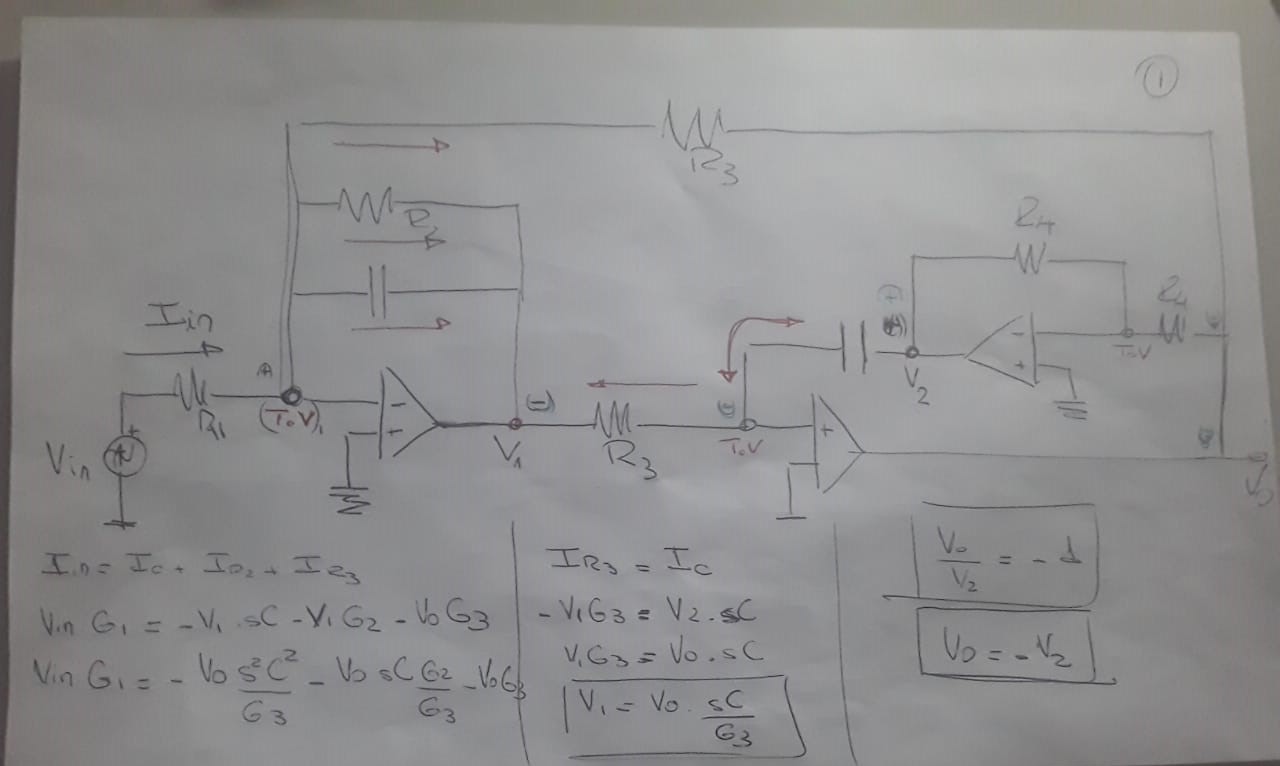 ①
R3
R2
R4
R4
Iin
(+)
R1
(T.O.V)1
Vin
+
-
+
(-)
V1
R3
(-)
T.O.V
+
V2
-
+
T.O.V
Vo
Iin = Ic + IR2 + IR3
Vin G1 = -V1.sC - V1G2 - VoG3
Vin G1 = - Vo s²C²/G3 - Vo sC G2/G3 - VoG3
IR3 = Ic
-V1G3 = V2.sC
V1G3 = Vo.sC
V1 = Vo. sC/G3
Vo/V2 = -1
Vo = -V2